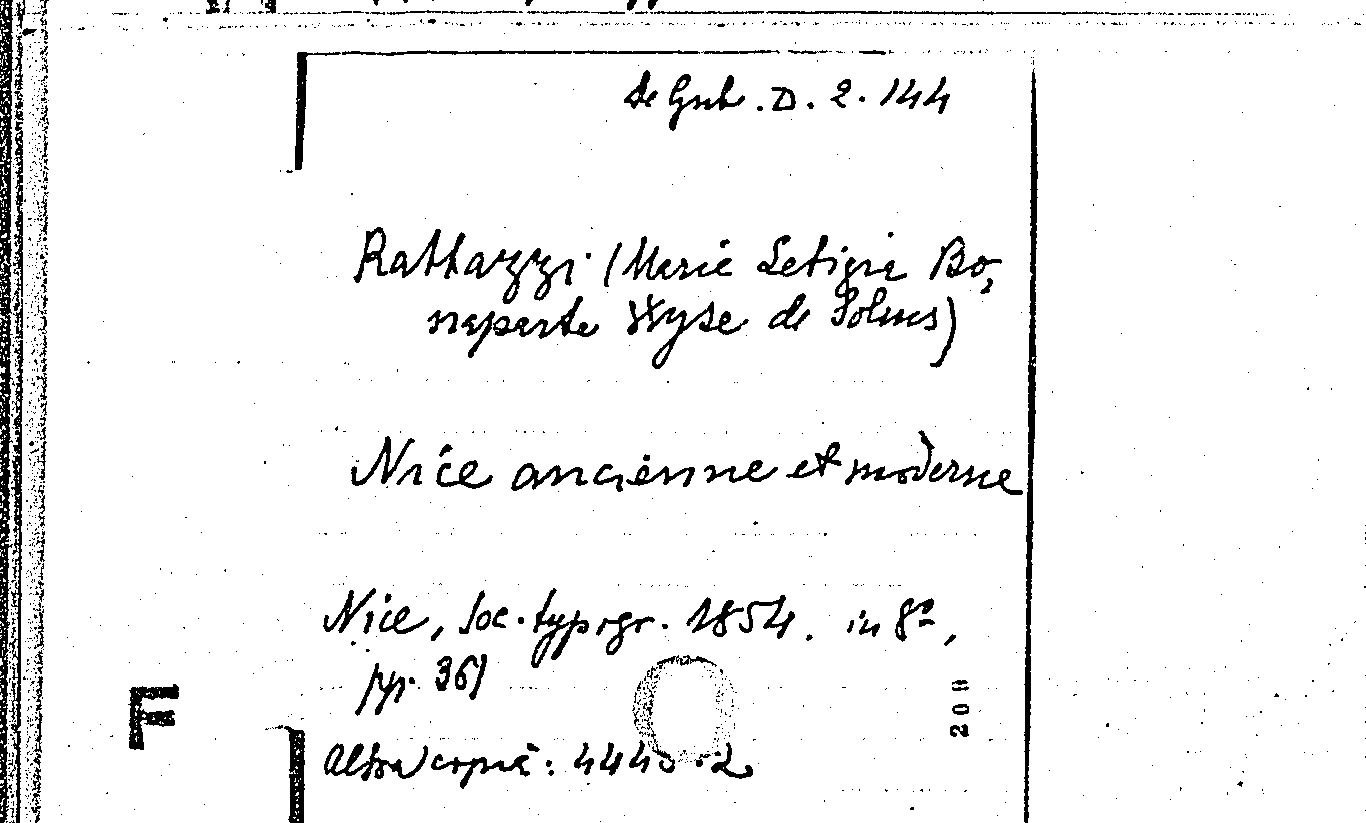 de Gub. D. 2. 144
Rattazzi (Marie Letizia Bo,
naparte Wyse de Solms)
Nice ancienne et moderne
Nice, Soc. typogr. 1854. in 8º,
pp. 367
F
200
Altra copia: